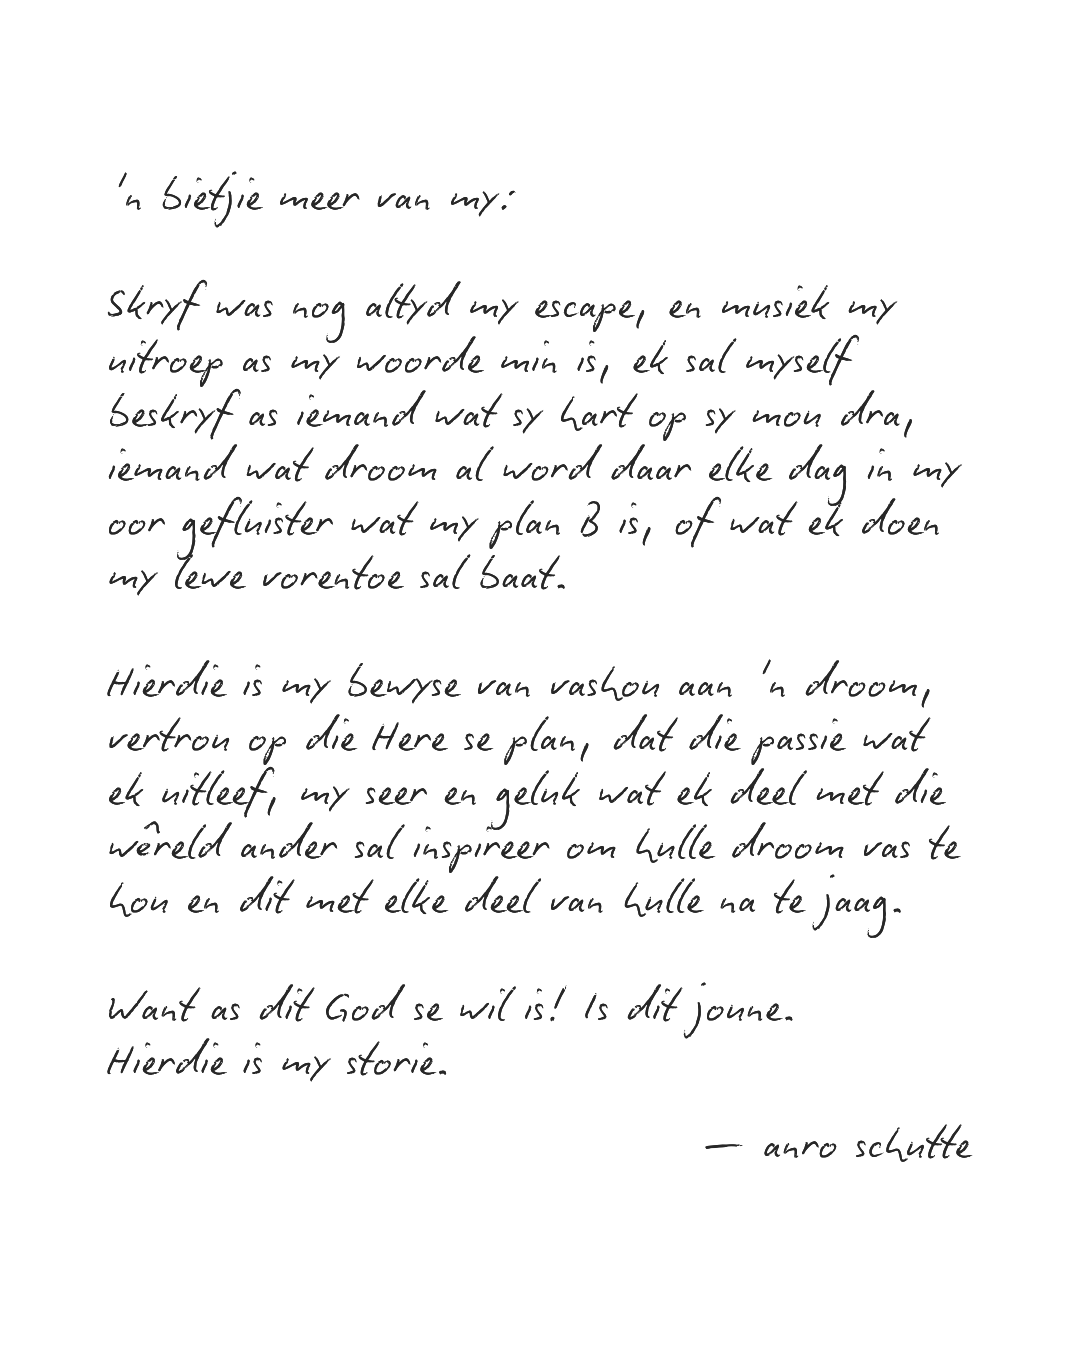 'n bietjie meer van my:
Skryf was nog altyd my escape, en musiek my
uitroep as my woorde min is, ek sal myself
beskryf as iemand wat sy hart op sy mou dra,
iemand wat droom al word daar elke dag in my
oor gefluister wat my plan B is, of wat ek doen
my lewe vorentoe sal baat.
Hierdie is my bewyse van vashou aan 'n droom,
vertrou op die Here se plan, dat die passie wat
ek uitleef, my seer en geluk wat ek deel met die
wêreld ander sal inspireer om hulle droom vas te
hou en dit met elke deel van hulle na te jaag.
Want as dit God se wil is! Is dit joune.
Hierdie is my storie.
— anro schutte